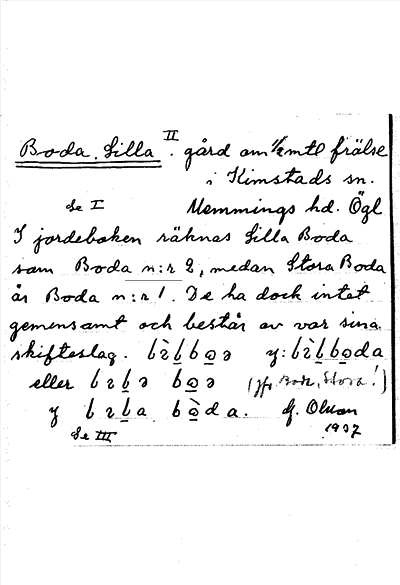 Boda. Lilla II. gård om ½ mtl frälse
i Kimstads sn.
Se I Memmings hd. Ögl
I jordeboken räknas Lilla Boda
som Boda n:r 2, medan Stora Boda
är Boda n:r 1. De ha dock intet
gemensamt och består av var sina
skifteslag. y:
eller (jfr Boda, Stora!)
y G. Olson
Se III 1937